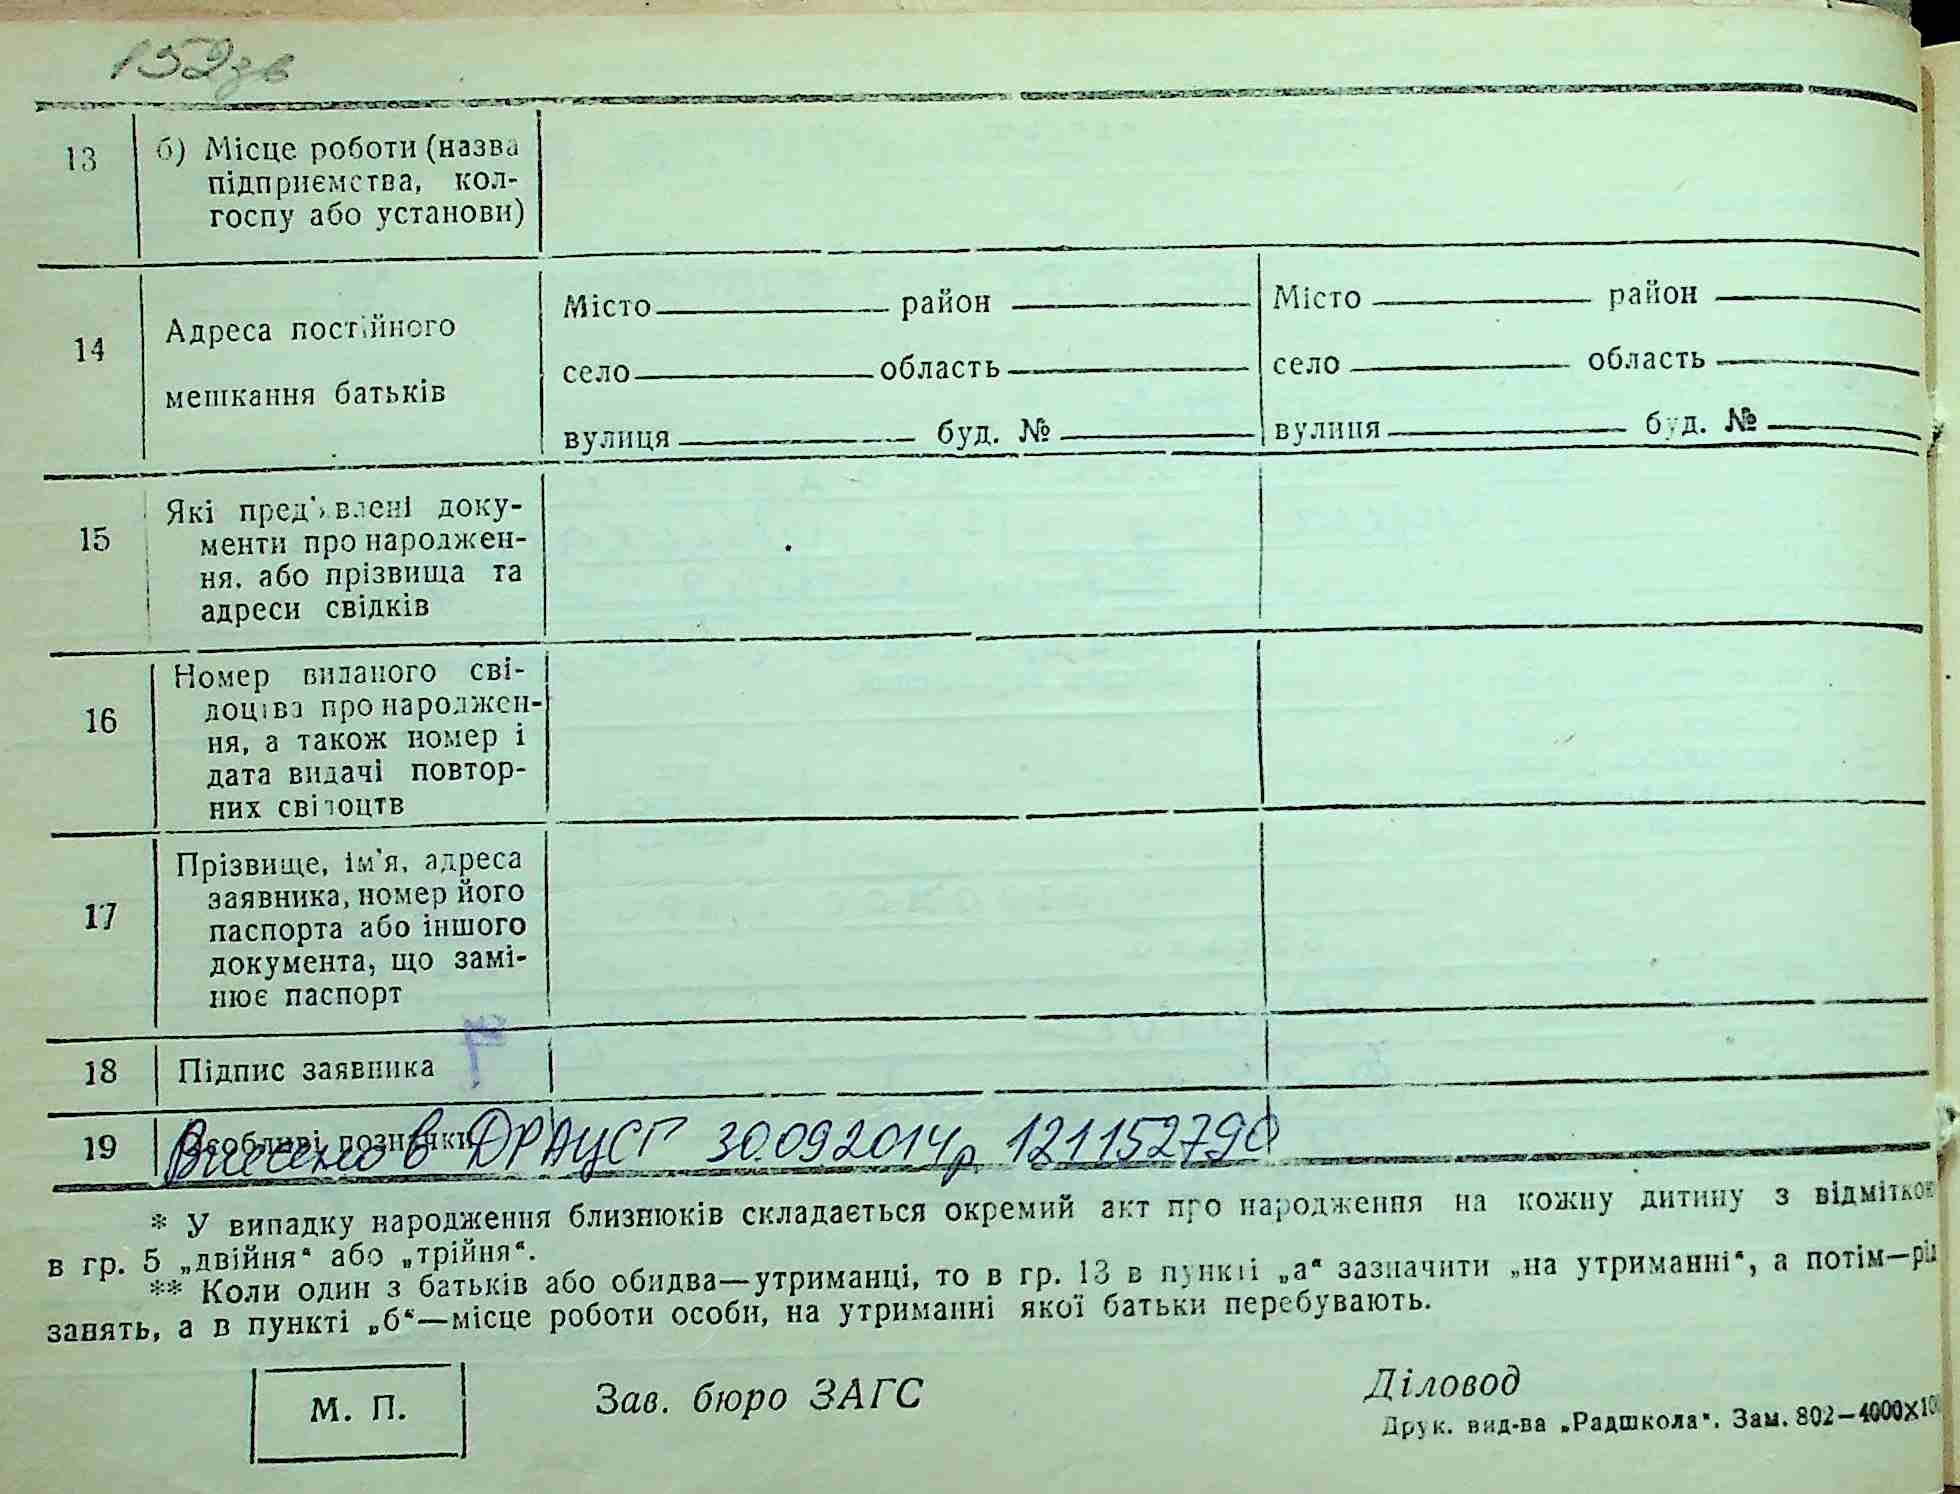 152 зв
13 б) Місце роботи (назва
підприємства, кол-
госпу або установи)
14 Адреса постійного
мешкання батьків
Місто район
село область
вулиця буд. №
Місто район
село область
вулиця буд. №
15 Які пред'явлені доку-
менти про народжен-
ня, або прізвища та
адреси свідків
16 Номер виданого сві-
доцтва про народжен-
ня, а також номер і
дата видачі повтор-
них свідоцтв
17 Прізвище, ім'я, адреса
заявника, номер його
паспорта або іншого
документа, що замі-
нює паспорт
18 Підпис заявника
19 Особливі позначки
Внесено в ДРАЦСГ 30.09.2014р. 121152790
* У випадку народження близнюків складається окремий акт про народження на кожну дитину з відміткою
в гр. 5 „двійня“ або „трійня“.
** Коли один з батьків або обидва—утриманці, то в гр. 13 в пункті „а“ зазначити „на утриманні“, а потім—рід
занять, а в пункті „б“—місце роботи особи, на утриманні якої батьки перебувають.
М. П.
Зав. бюро ЗАГС
Діловод
Друк. вид-ва „Радшкола“. Зам. 802—4000×100